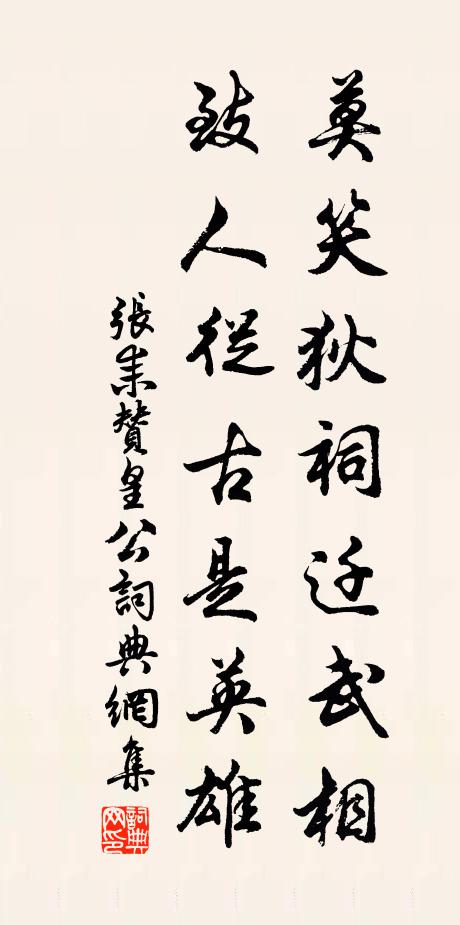 莫笑狄祠迁武相
致人從古是英雄
張耒贊皇公詞典網集
詞典网印